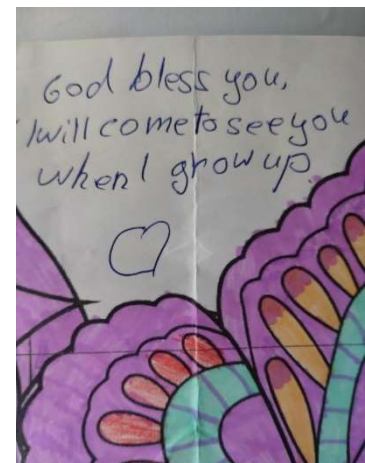 God bless you,
I will come to see you
when I grow up